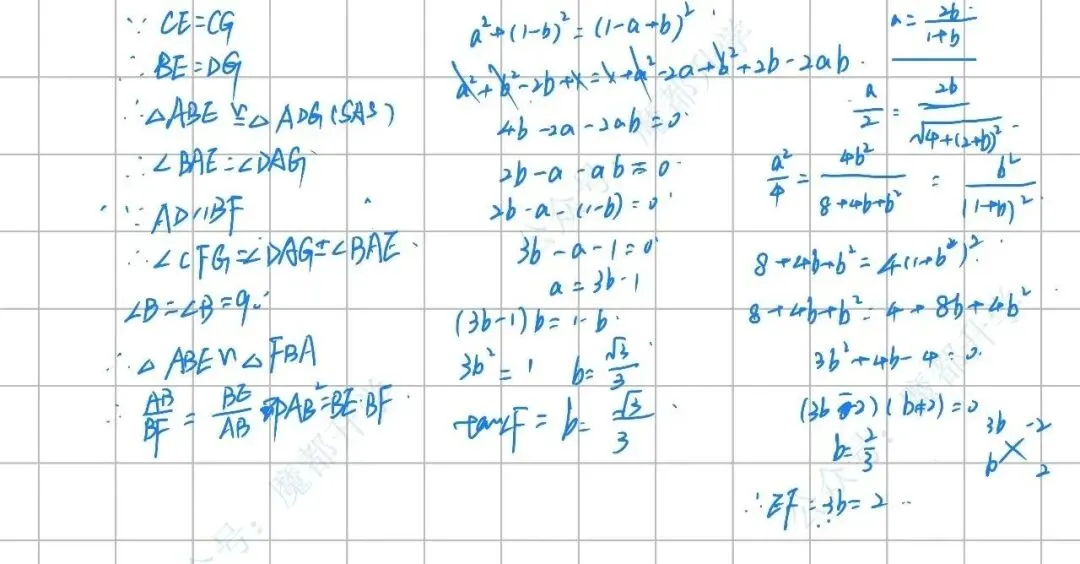 ∵ CE=CG
∴ BE=DG
∴ △ABE≌△ADG(SAS)
∴ ∠BAE=∠DAG
∵ AD∥BF
∴ ∠CFG=∠DAG=∠BAE
∠B=∠B=90°
∴ △ABE∽△FBA
∴ AB/BF = BE/AB 即AB²=BE·BF
a²+(1-b)²=(1-a+b)²
a²+b²-2b+1=1+a²-2a+b²+2b-2ab
4b-2a-2ab=0
2b-a-ab=0
2b-a-(1-b)=0
3b-a-1=0
a=3b-1
(3b-1)b=1-b
3b²=1 b=√3/3
tan∠F=b=√3/3
a=2b/(1+b)
a/2=2b/√(4+(2+b)²)
a²/4=4b²/(8+4b+b²)=b²/(1+b)²
8+4b+b²=4(1+b)²
8+4b+b²=4+8b+4b²
3b²+4b-4=0
(3b-2)(b+2)=0
3b -2
b 2
b=2/3
∴ EF=3b=2
公众号：魔都升学